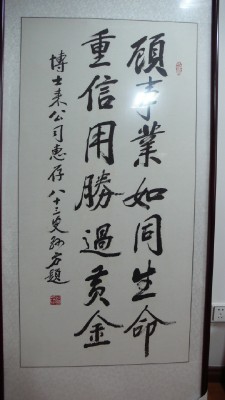 顾事業如同生命
重信用勝過黄金
博士来公司惠存 八十三叟孙方题